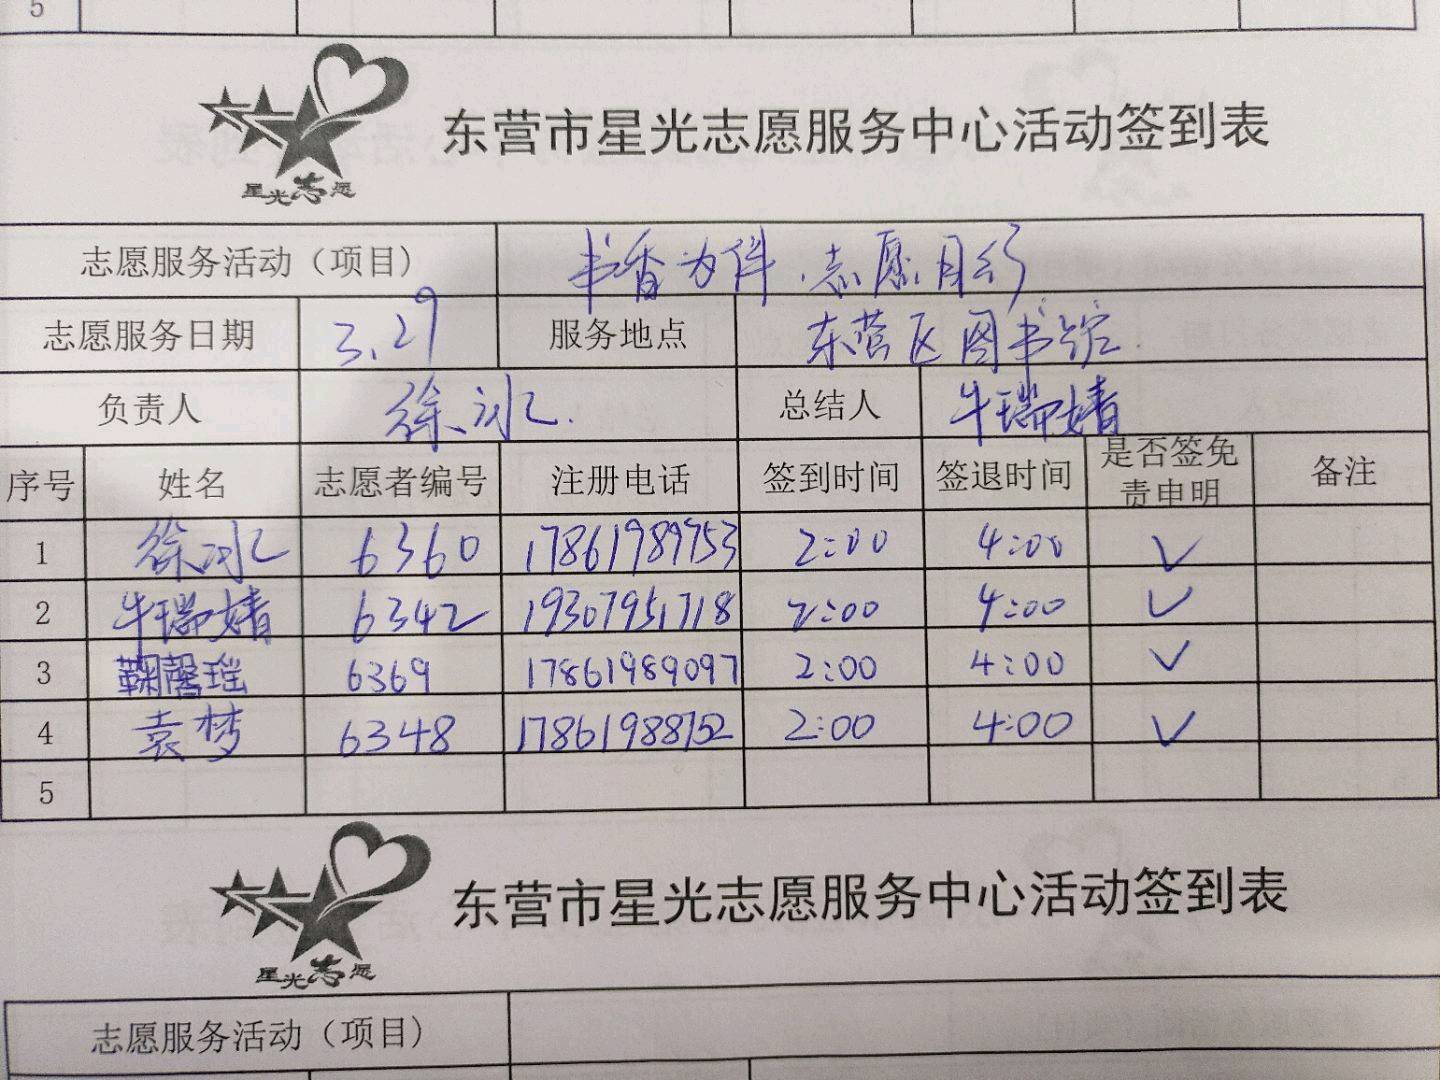 5
星光志愿
东营市星光志愿服务中心活动签到表
志愿服务活动（项目） 书香为伴.志愿同行
志愿服务日期 3.29 服务地点 东营区图书馆
负责人 徐冰 总结人 牛瑞婧
序号 姓名 志愿者编号 注册电话 签到时间 签退时间 是否签免责申明 备注
1 徐冰 6360 17861989753 2:00 4:00 ✓
2 牛瑞婧 6342 19307951718 2:00 4:00 ✓
3 鞠馨瑶 6369 17861989097 2:00 4:00 ✓
4 袁梦 6348 17861988752 2:00 4:00 ✓
5
星光志愿
东营市星光志愿服务中心活动签到表
志愿服务活动（项目）